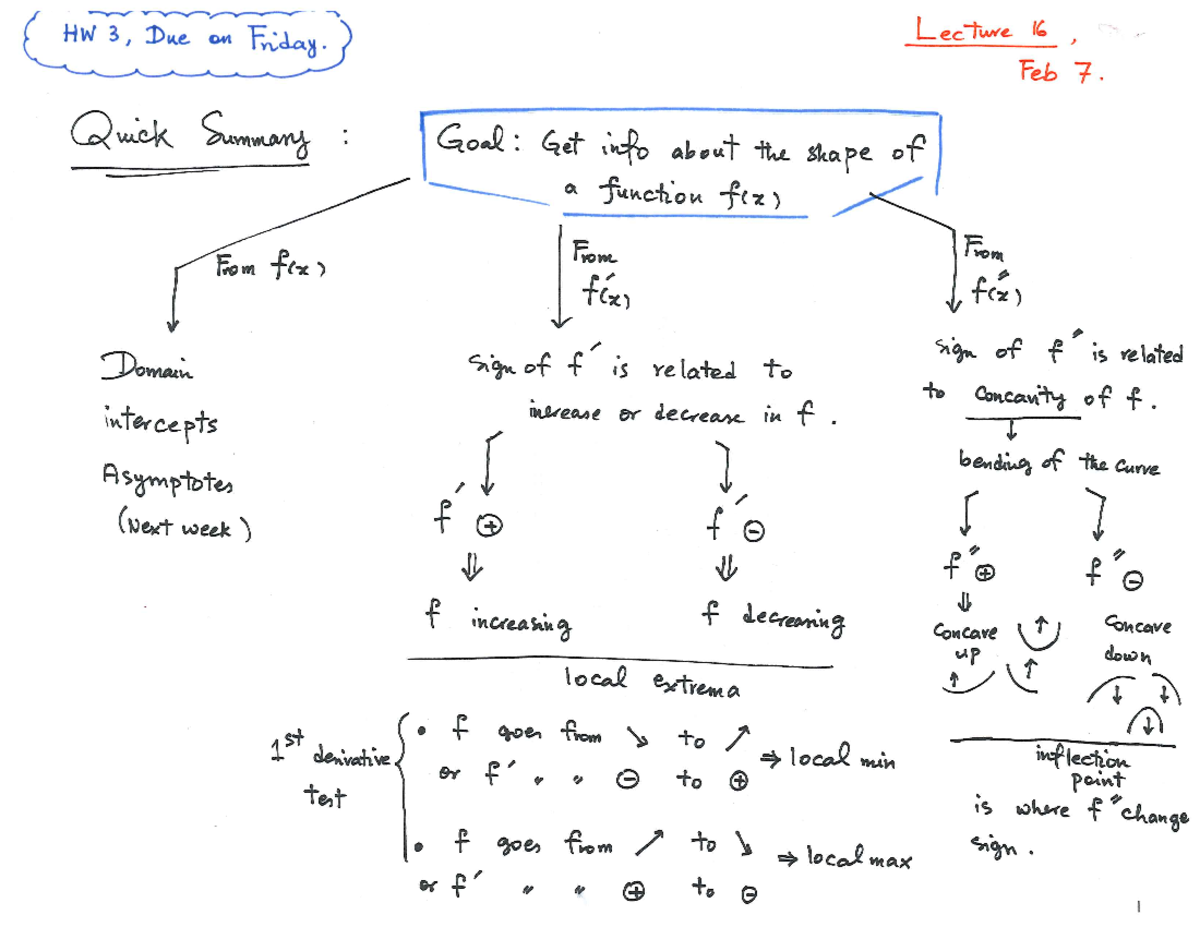 HW 3, Due on Friday.
Lecture 16,
Feb 7.
Quick Summary :
Goal: Get info about the shape of
a function f(x)
From f(x)
Domain
intercepts
Asymptotes
(Next week)
From
f′(x)
sign of f′ is related to
increase or decrease in f.
f′ ⊕
⇓
f increasing
f′ ⊖
⇓
f decreasing
local extrema
1st derivative
test
• f goes from ↘ to ↗
or f′ " " ⊖ to ⊕
⇒ local min
• f goes from ↗ to ↘
or f′ " " ⊕ to ⊖
⇒ local max
From
f″(x)
sign of f″ is related
to Concavity of f.
bending of the curve
f″ ⊕
⇓
Concave
up
f″ ⊖
Concave
down
inflection
point
is where f″ change
sign.
1